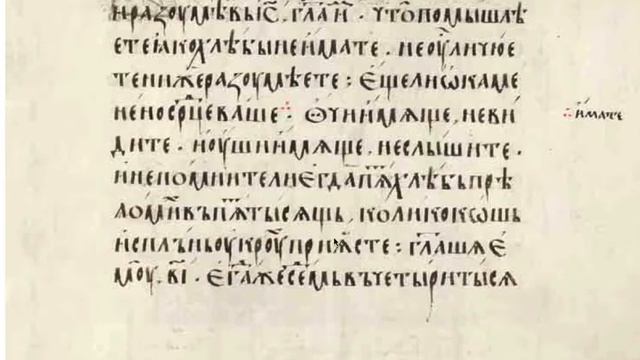 и разоумѣвъ іс҃ гл҃а и҆мъ · что помышлѣ
ете ꙗко хлѣбы не имате · не оу҆ ли чюе
те ниже разоумѣете : е҆ще ли ѡкаме
нено ср҃це ваше ⁘ Ѡчи имѧще, не ви
дите · и оуши имѧще, не слышите ·
и не помните ли е҆гда пѧт хлѣбъ прѣ
ломи въ пѧт тысѧщь, колико кошь
исплънь оукроу приѧсте : гл҃ашѧ е҆
моу · в҃і · е҆гд҃а же седмь въ четыри тысѧ
⁘ и҆мате